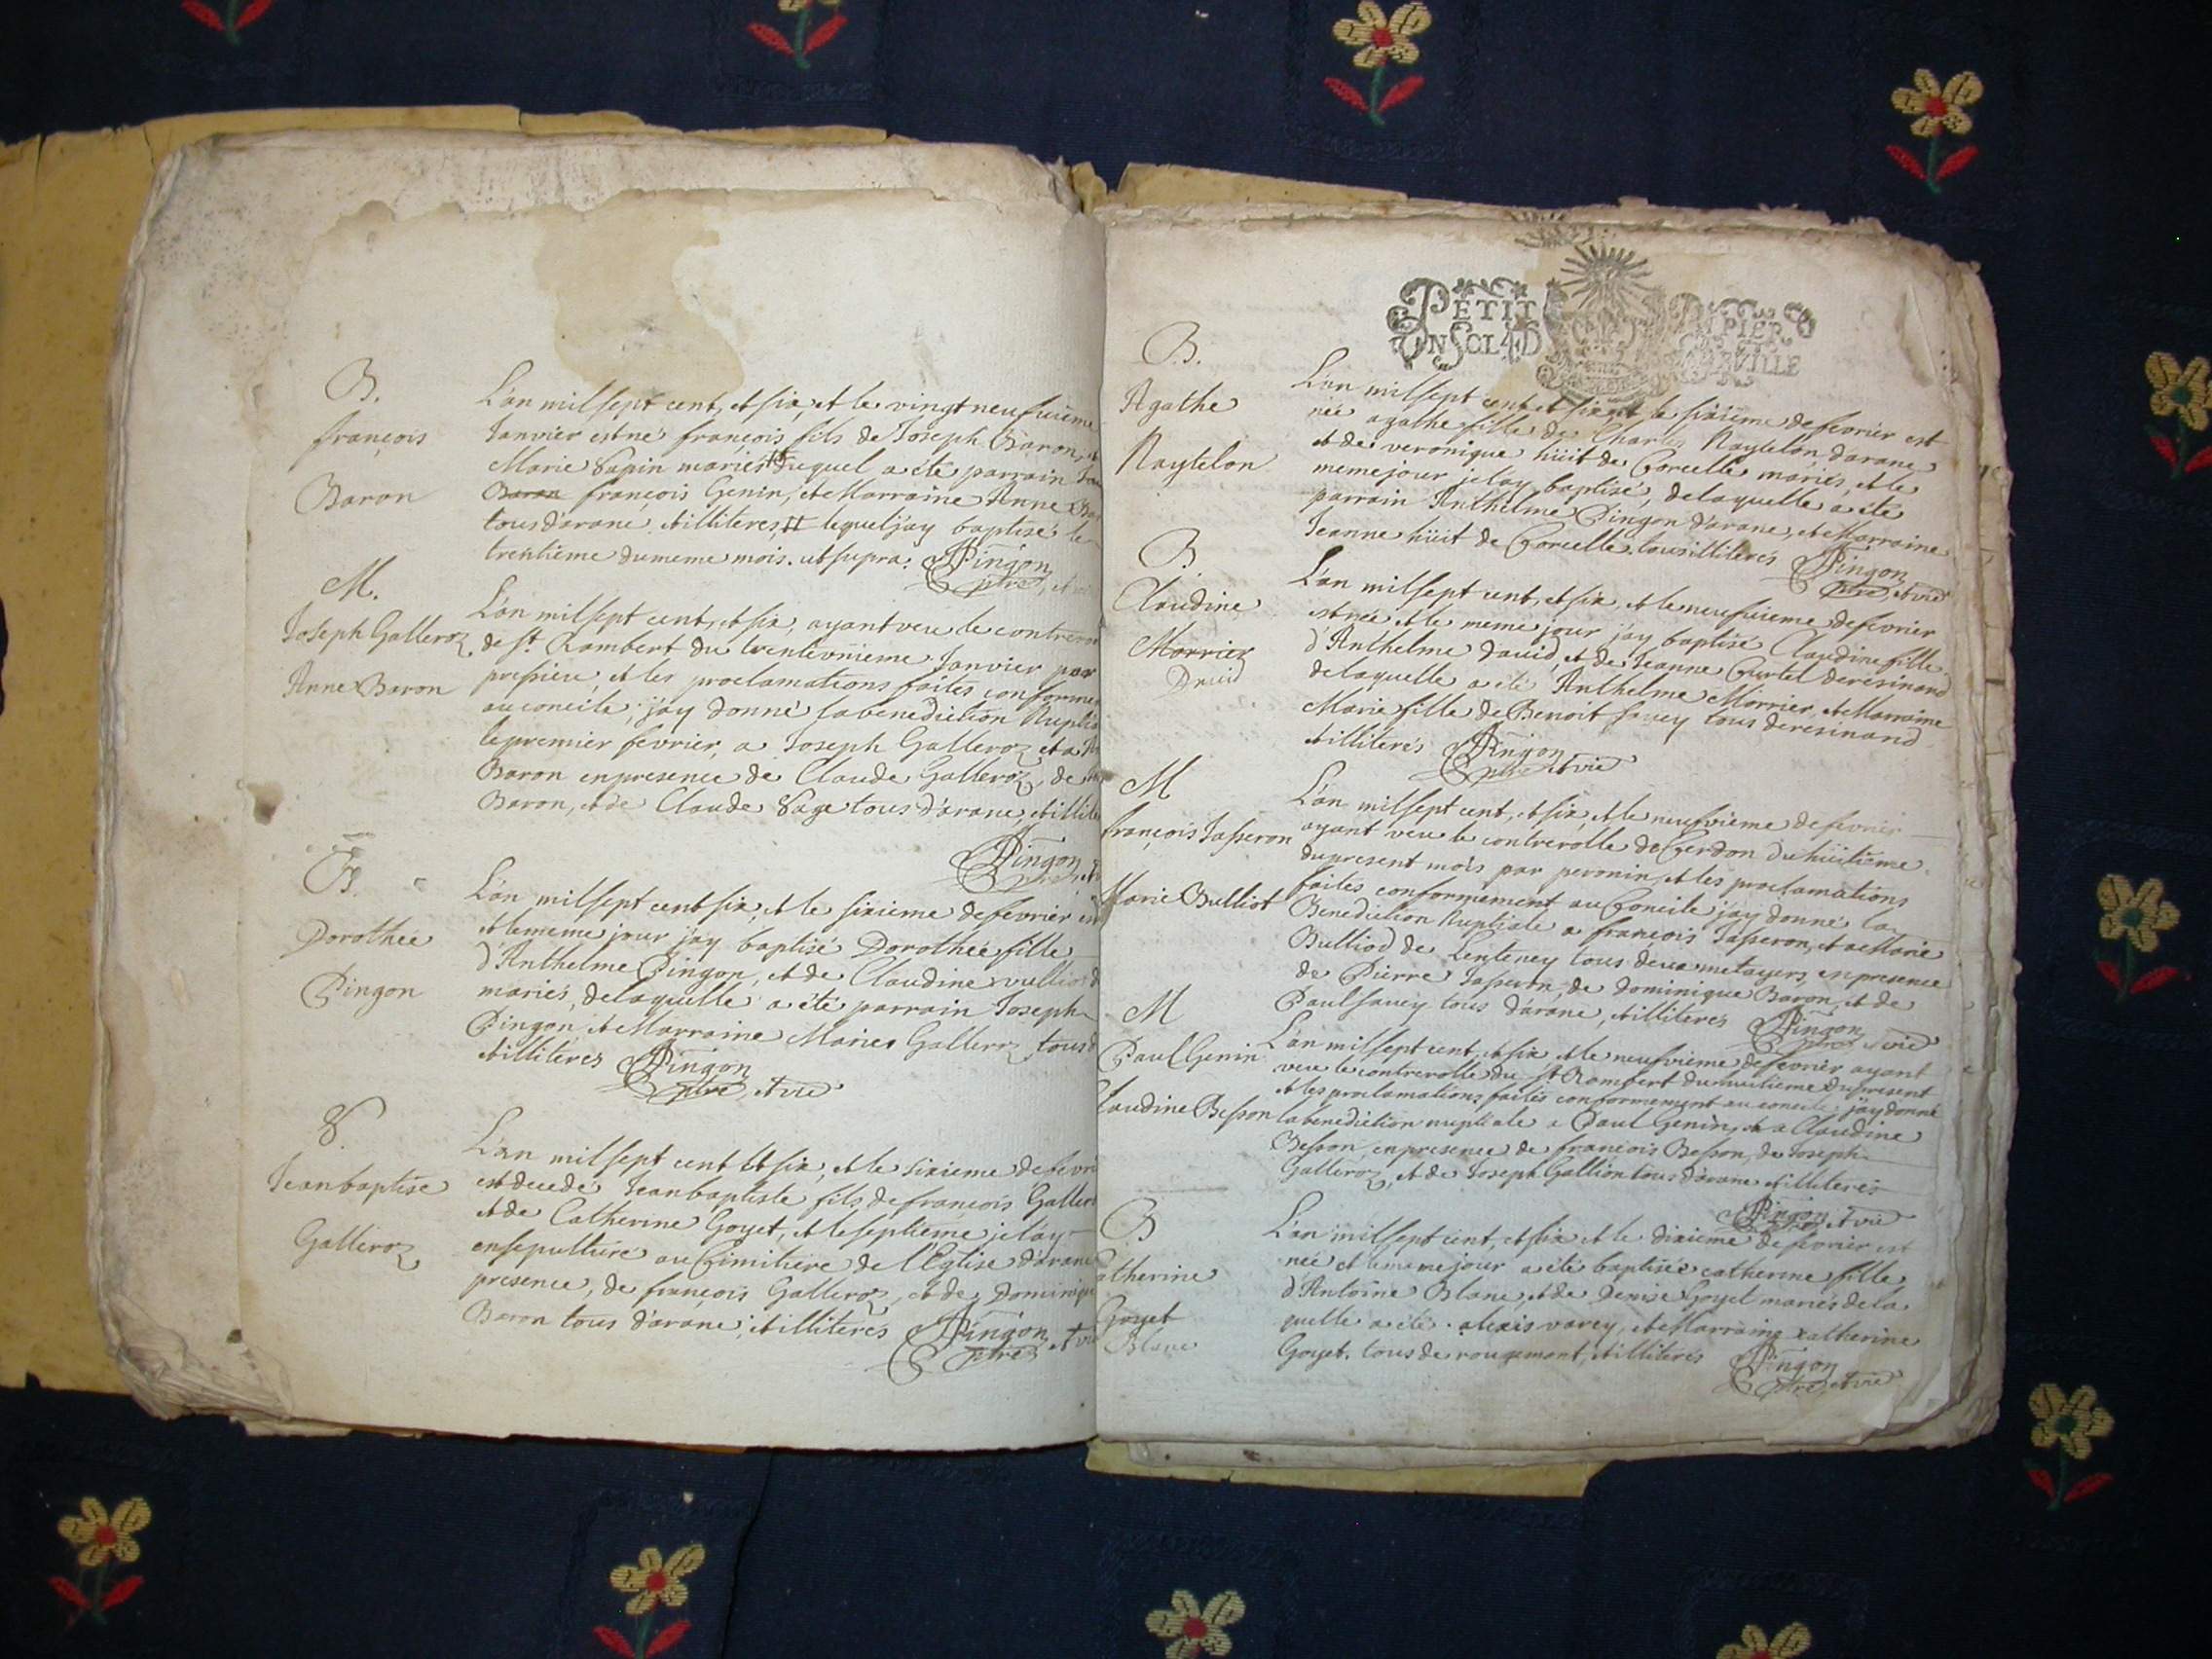 B.
françois
Baron
L'an mil sept cent, et six, et le vingt neufuieme
Janvier est né françois fils de Joseph Baron, et
Marie Sapin mariés duquel a été parrain
Baron françois Genin, et Marraine Anne Bar
tous d'arane et illiteres, lequel j'ay baptisé le
trentième du meme mois. ut supra. Pingon
ptre, et vic
M.
Joseph Galleroz
Anne Baron
L'an mil sept cent, et six, ayant veu le contrero
de st Rambert du trentevnieme Janvier par
prepiere, et les proclamations faites conforme
au concile, j'ay donné la benediction Nuptia
le premier fevrier, a Joseph Galleroz et a An
Baron en presence de Claude Galleroz, de
Baron, et de Claude Sage tous d'arane, et illite
Pingon
ptre, et v
B.
Dorothée
Pingon
L'an mil sept cent six, et le sixieme de fevrier est
et le meme jour j'ay baptisé Dorothée fille
d'Anthelme Pingon, et de Claudine vulliod
mariés, de laquelle a été parrain Joseph
Pingon, et Marraine Marie Galleroz tous d
et illiteres Pingon
ptre et vic
S.
Jean baptise
Galleroz
L'an mil sept cent et six, et le sixieme de fevri
est decede Jean baptiste fils de françois Galler
et de Catherine Goyet, et le septieme je l'ay
ensepulturé au Cimitiere de l'Eglise d'arane
presence, de françois Galleroz, et de Dominique
Baron tous d'arane, et illiterés Pingon
ptre et vic
PETIT PAPIER
UN SOL 4D LA FEUILLE
B.
Agathe
Naytelon
L'an mil sept cent et six et le sixieme de fevrier est
née agathe fille de Charles Naytelon d'arane
et de veronique hüit de Corcelle mariés, et le
meme jour je l'ay baptisé, de laquelle a été
parrain Anthelme Pingon d'arane, et Marraine
Jeanne hüit de Corcelle. tous illiterés Pingon
ptre, et vic
B.
Claudine
Morrier
David
L'an mil sept cent, et six, et le neufuieme de fevrier
est née et le meme jour j'ay baptisé Claudine fille
d'Anthelme david, et de Jeanne Curtel de resinand
de laquelle a été Anthelme Morrier, et Marraine
Marie fille de Benoit savey tous de resinand
et illiterés Pingon
ptre et vic
M
françois Jasseron
Marie Bulliot
L'an mil sept cent, et six, et le neufvieme de fevrier
ayant veu le contrerolle de Cerdon du hüitieme
du present mois par peronin, et les proclamations
faites conformement au Concile j'ay donné la
Benediction Nuptiale a françois Jasseron, et a Marie
Bulliod de Lenteney tous deux metayers, en presence
de Pierre Jasseron, de dominique Baron, et de
Paul savey tous d'arane, et illiterés Pingon
ptre et vic
M
Paul Genin
Claudine Besson
L'an mil sept cent, et six et le neufvieme de fevrier ayant
veu le contrerolle du st Rambert du huitieme du present
et les proclamations faites conformement au concile, j'ay donné
la benediction nuptiale a Paul Genin, et a Claudine
Besson, en presence de françois Besson, de Joseph
Galleroz, et de Joseph Gallion tous d'arane et illiterés
Pingon et vic
B
Catherine
Goyet
Blanc
L'an mil sept cent, et six et le dixieme de fevrier est
née et le meme jour a été baptisée catherine fille
d'Antoine Blanc, et de Denise Goyet mariés de la
quelle a été alexis varey, et Marraine catherine
Goyet. tous de rougemont, et illiterés Pingon
ptre et vic